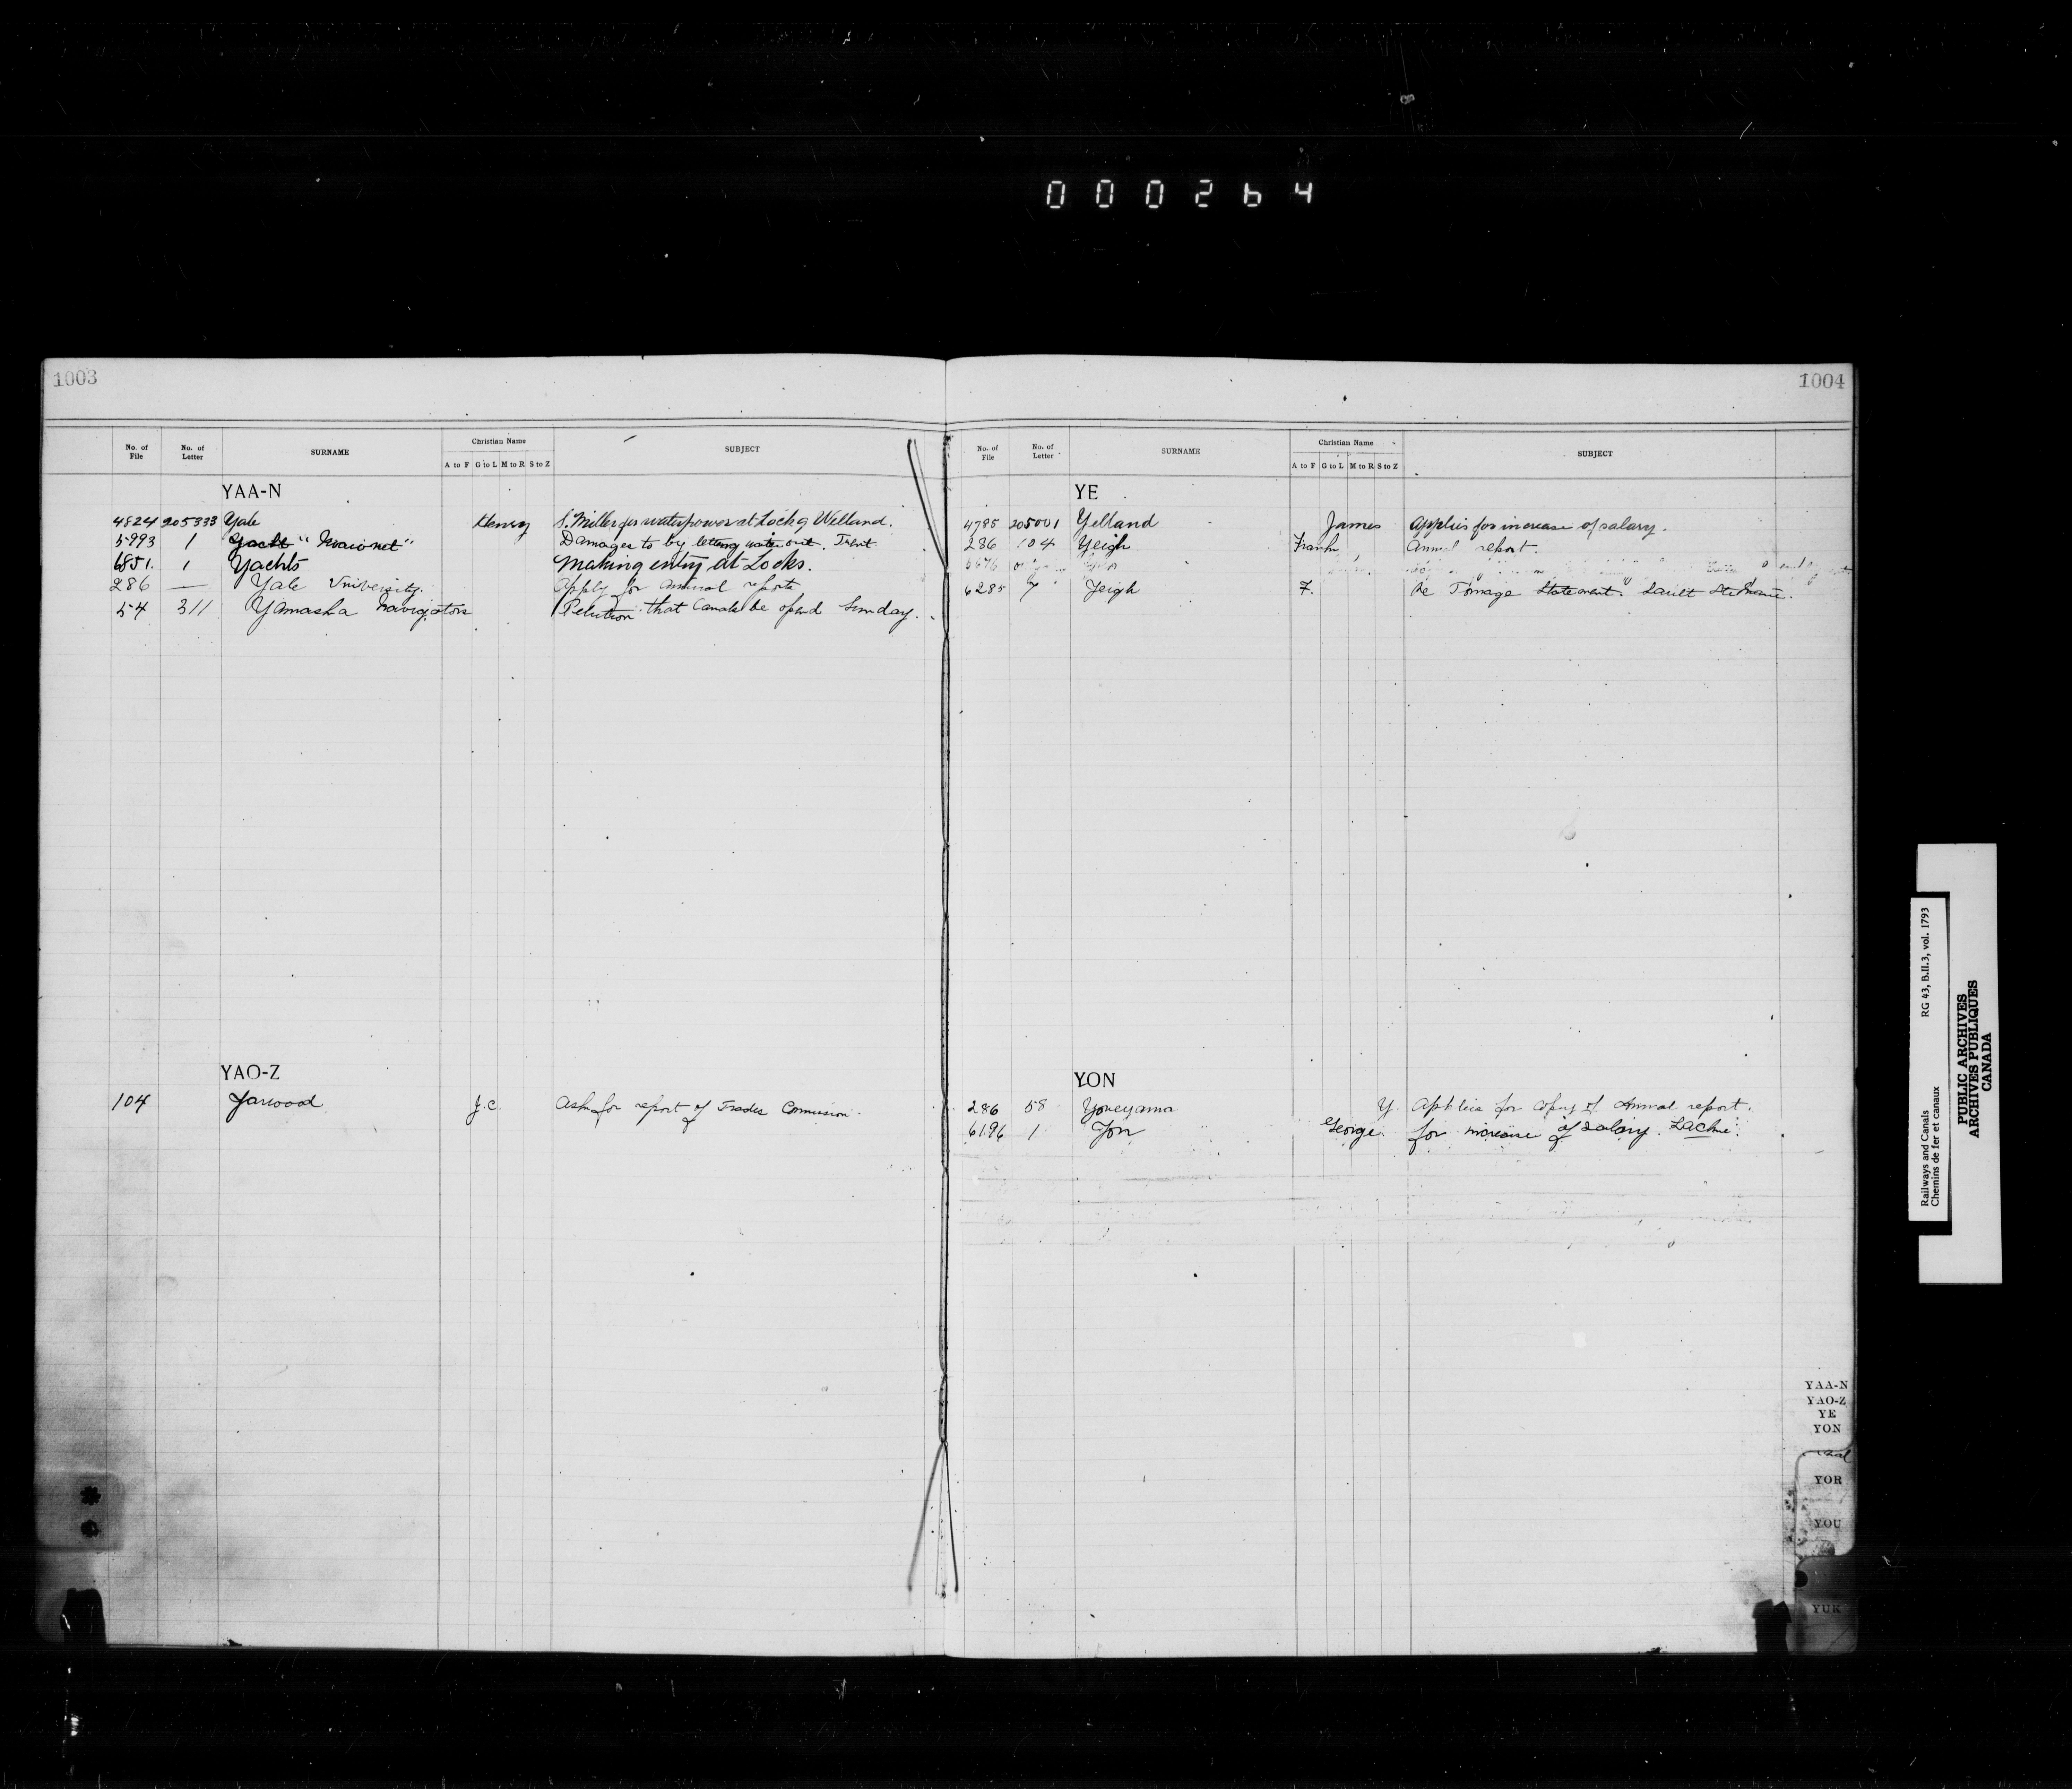 000264
1003
No. of File No. of Letter SURNAME Christian Name SUBJECT
A to F G to L M to R S to Z
YAA-N
4824 205333 Yale Henry S. Miller for waterpower at Lock 9 Welland.
5993 1 Yacht Damages to by letting water out. Trent
6851. 1 Yachts Making entry at Locks.
286 — Yale University. Apply for annual reports
54 311 Yamaska Navigators Petition that Canals be opend Sunday.
YAO-Z
104 Yarwood J.C. Asks for report of Trades Commission.
1004
No. of File No. of Letter SURNAME Christian Name SUBJECT
A to F G to L M to R S to Z
YE
4785 205001 Yelland James Applies for increase of salary.
286 104 Yeigh Frank Annual report.
6285 7 Yeigh F. Re Tonnage Statement. Sault Ste Marie.
YON
286 58 Yoneyama Y. Applies for copy of Annual report.
6196 1 Yon George. for increase of salary. Lachine.
YAA-N
YAO-Z
YE
YON
YOR
YOU
YUK
Railways and Canals RG 43, B.II.3, vol. 1793
Chemins de fer et canaux
PUBLIC ARCHIVES
ARCHIVES PUBLIQUES
CANADA